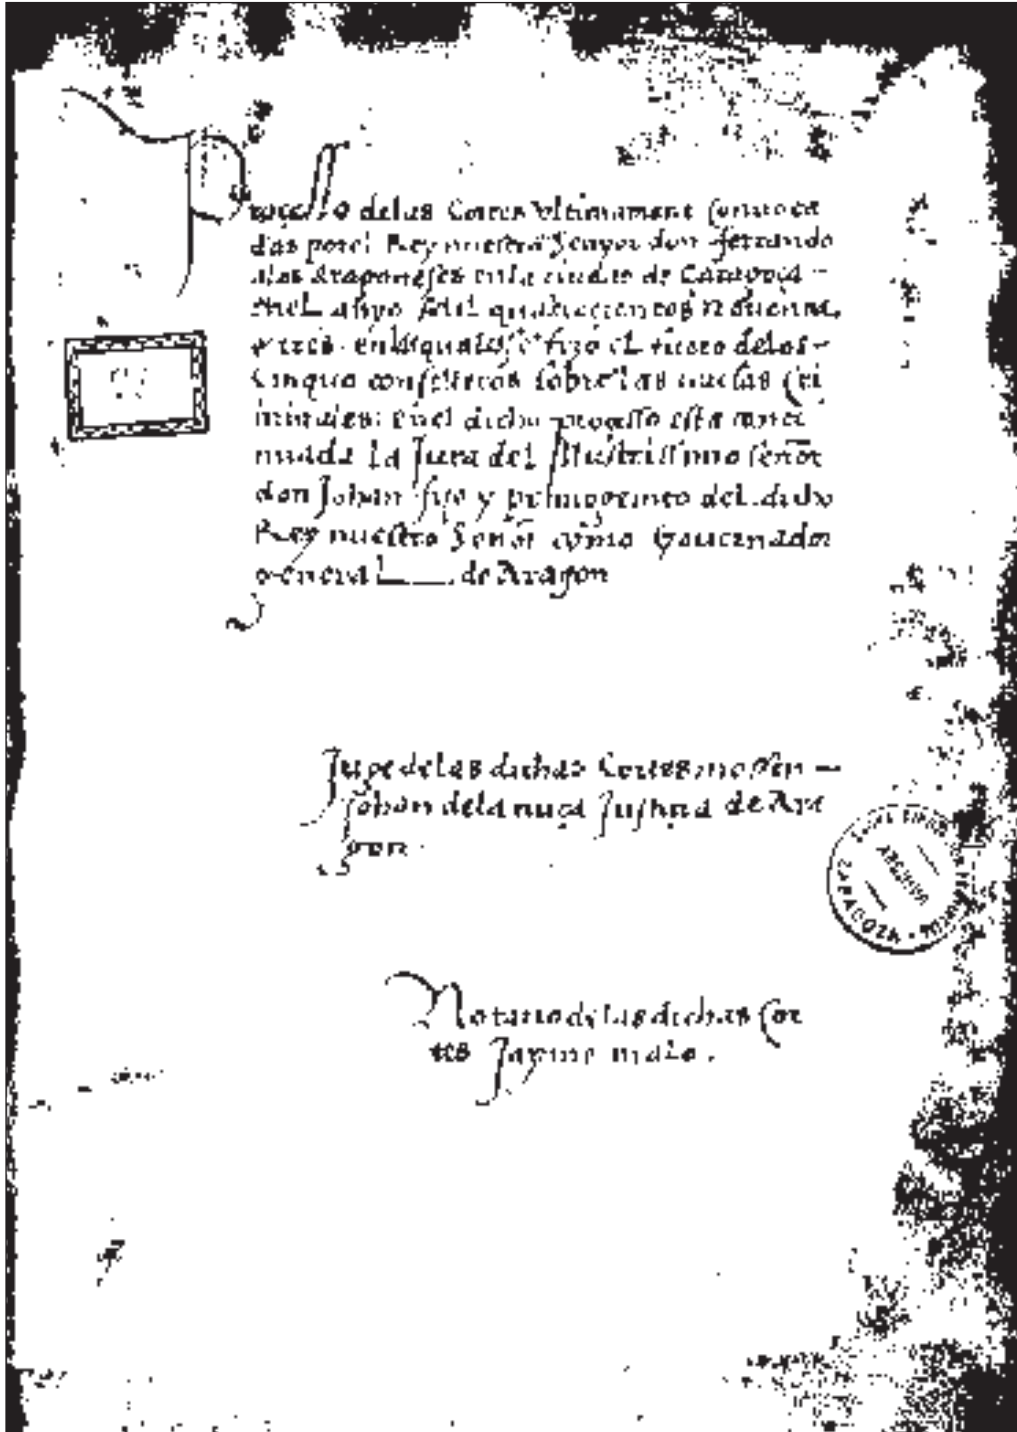 Proçesso delas Cortes vltimament conuoca
das por el Rey nuestro Senyor don ferrando
alos Aragoneses en la ciudat de Caragoça
enel anyo Mil quatrocientos nouenta
y tres. enlasquales se fizo el fuero delos
Cinquo conselleros sobre las causas Cri
minales: en el dicho proçesso esta conti
nuada la Jura del Illustrissimo señor
don Johan fijo y primogenito del dicho
Rey nuestro Señor como Gouernador
general de Aragon
Juge delas dichas Cortes mossen
Johan dela nuça Justiçia de Ara
gon
Notario delas dichas Cor
tes Jayme malo.
ARCHIVO
ZARAGOZA